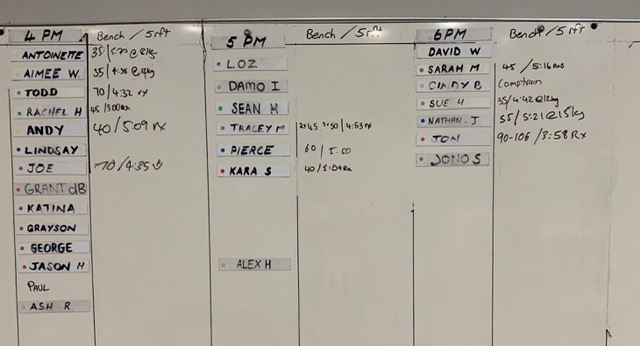 4 PM Bench / 5rft
ANTOINETTE 35/5:20 @ 12kg
AIMEE W. 35/4:38 @ 9kg
TODD 70/4:32 rx
RACHEL H 45/5:00Rx
ANDY 40/5:09 rx
LINDSAY
JOE 70/4:35
GRANT dB
KATINA
GRAYSON
GEORGE
JASON H
PAUL
ASH R
5 PM Bench / 5rft
LOZ
DAMO I
SEAN H
TRACEY M 45 50 / 4:53 rx
PIERCE 60 / 5:00
KARA S 40/5:09 Rx
ALEX H
6PM Bench / 5rft
DAVID W
SARAH M 45 / 5:16 Rx
CINDY B Comptrain
SUE H 35/4:42 @ 12kg
NATHAN. J 55/5:21 @ 15kg
JON 90-106 / 3:58 Rx
JONO S